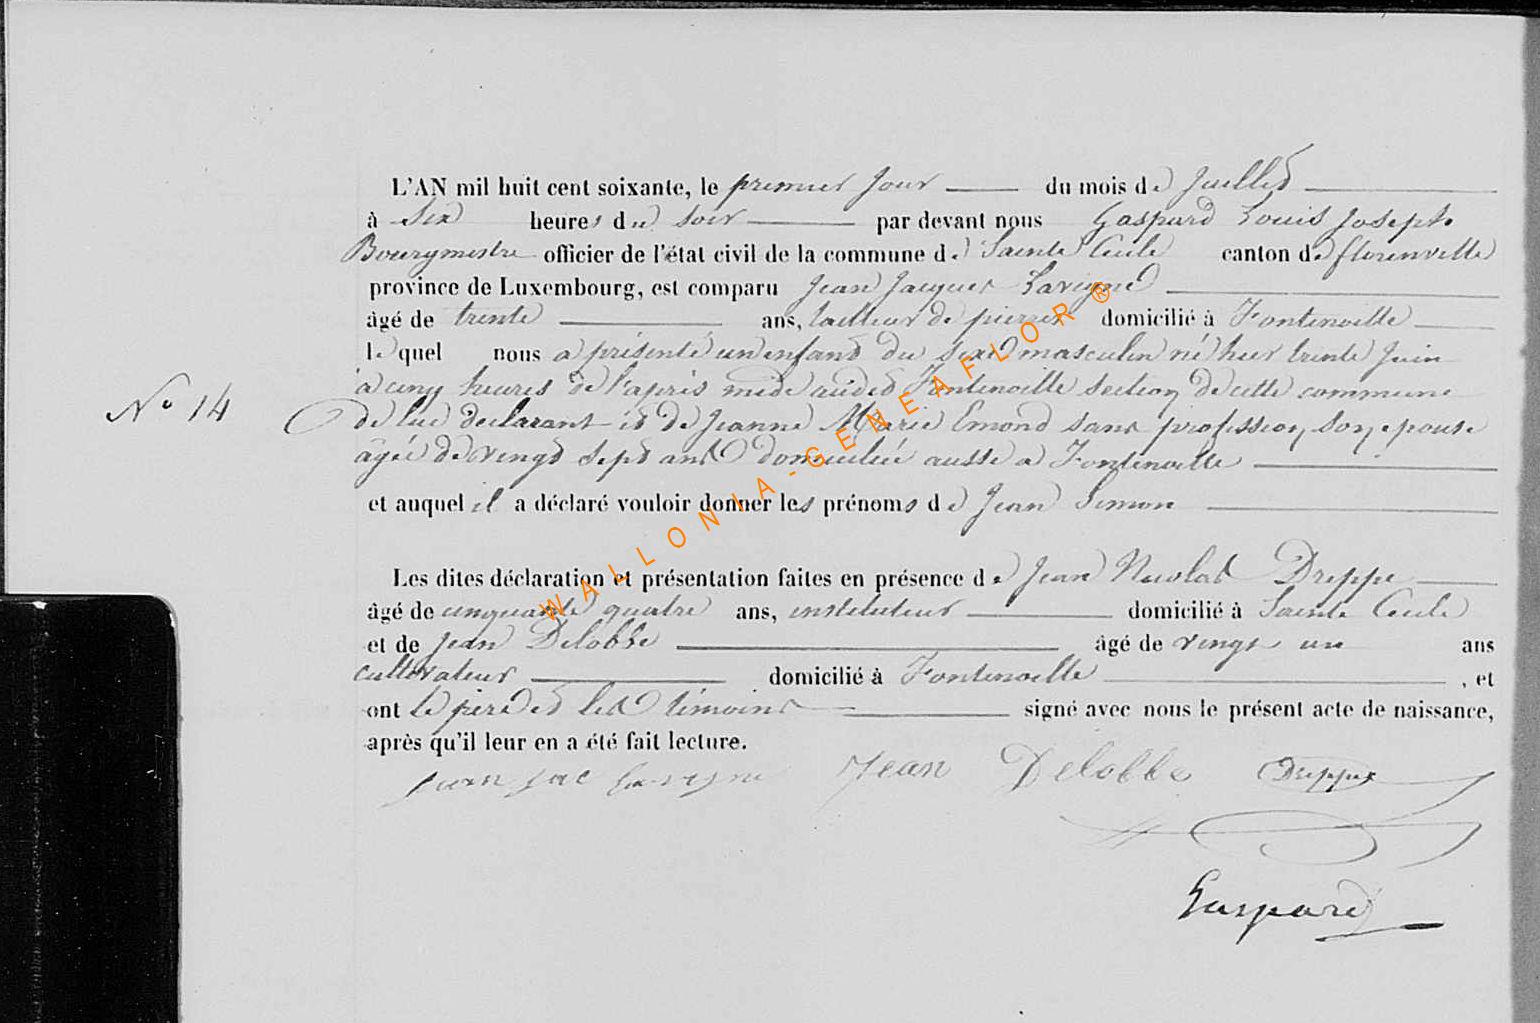 L'AN mil huit cent soixante, le premier jour du mois de Juillet
à Six heures du soir par devant nous Gaspard Louis Joseph
Bourgmestre officier de l'état civil de la commune de Sainte Cecile canton de florenville
province de Luxembourg, est comparu Jean Jacques Lavigne
âgé de trente ans, tailleur de pierres domicilié à Fontenoille
lequel nous a présenté un enfant du sexe masculin né hier trente Juin
à cinq heures de l'après midi audit Fontenoille section de cette commune
N° 14 de lui declarant et de Jeanne Marie Emond sans profession, son epouse
âgée de vingt sept ans domiciliée aussi a Fontenoille
et auquel il a déclaré vouloir donner les prénoms de Jean Simon
Les dites déclaration et présentation faites en présence de Jean Nicolas Dreppe
âgé de cinquante quatre ans, instituteur domicilié à Sainte Cecile
et de Jean Delobbe âgé de vingt un ans
cultivateur domicilié à Fontenoille , et
ont le père et les témoins signé avec nous le présent acte de naissance,
après qu'il leur en a été fait lecture.
Jean Jac Lavigne Jean Delobbe Dreppe
Gaspard
WALLONIA-GENEAFLOR ®